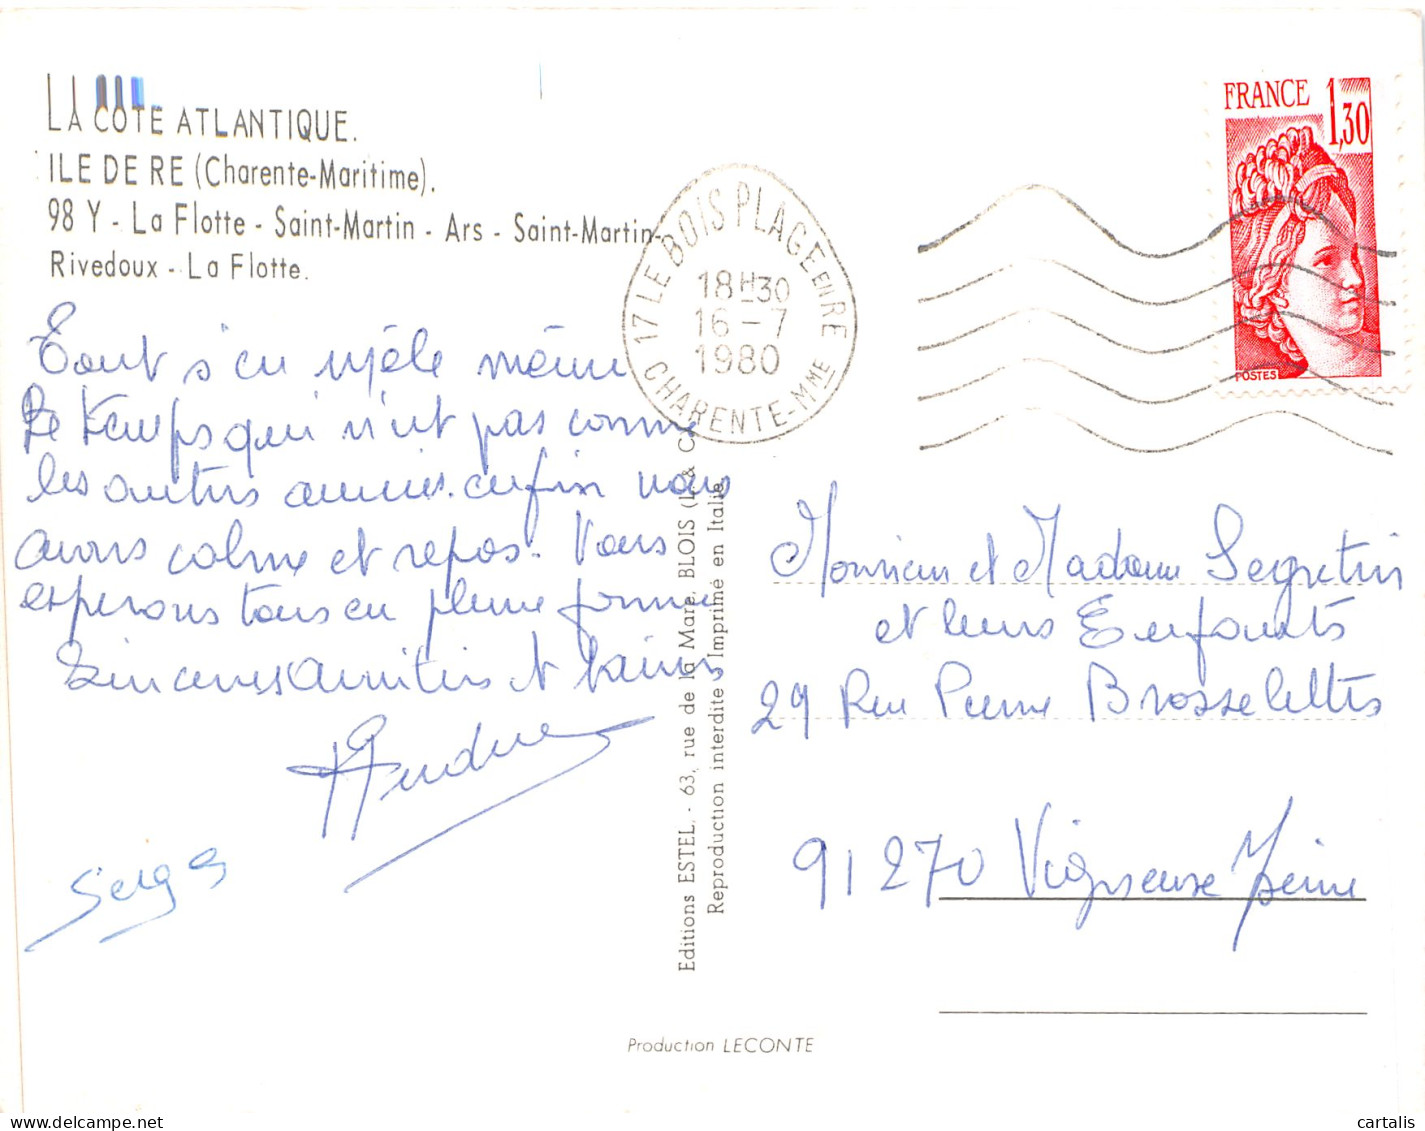 LA COTE ATLANTIQUE.
ILE DE RE (Charente-Maritime).
98 Y - La Flotte - Saint-Martin - Ars - Saint-Martin-
Rivedoux - La Flotte.
Tout s'en mêle même
le temps qui n'est pas comme
les autres années. enfin nous
avons calme et repos. Vous
esperons tous en pleine forme
Sinceres Amitiés et baisers
Serge
17 LE BOIS PLAGE EN RE
18H30
16-7
1980
CHARENTE-MME
FRANCE 1,30
POSTES
Editions ESTEL. - 63, rue de la Mare, BLOIS (L & C
Reproduction interdite - Imprimé en Italie
Monsieur et Madame Segretin
et leurs Enfants
29 Rue Pierre Brosselettes
91270 Vigneux s/ Seine
Production LECONTE
cartalis